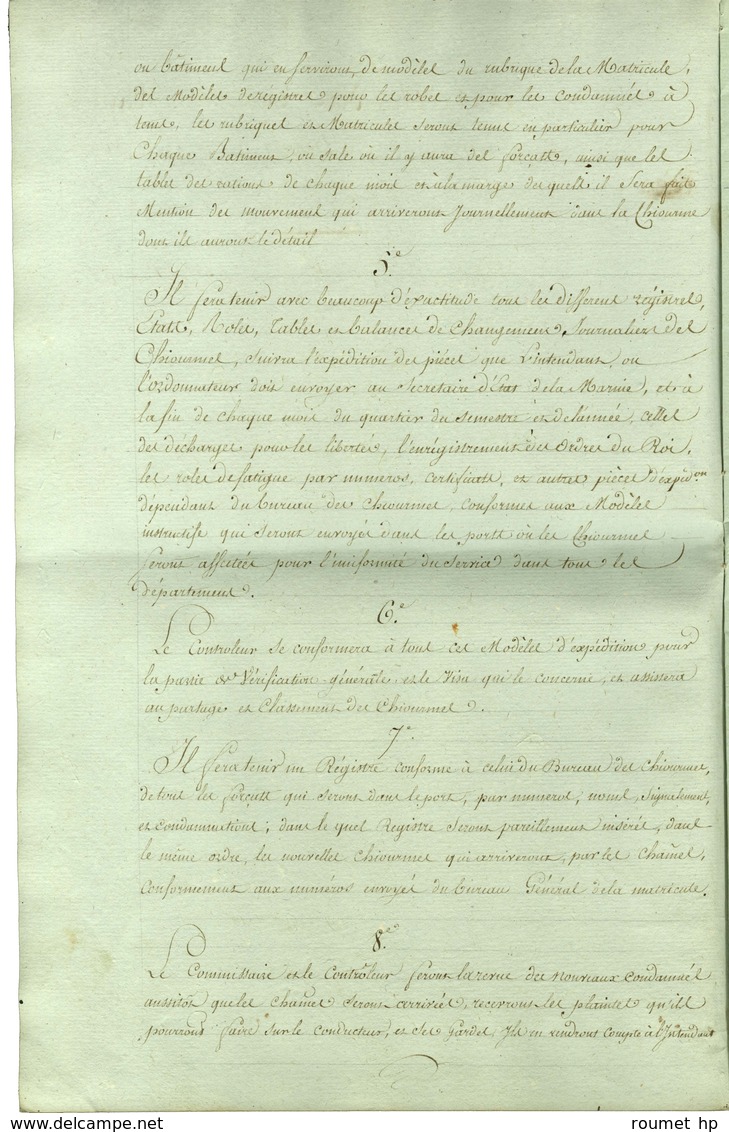 ou bâtiment qui en serviront, de modèles du rubrique de la Matricule,
des Modèles de registres pour les robes et pour les condamnés à
tems, les rubriques et Matricules seront tenus en particulier pour
Chaque Batiment, ou sale où il y aura des forçats, ainsi que les
tables des rations de chaque mois et à la marge desquels il sera fait
Mention des mouvemens qui arriveront Journellement dans la Chiourme
dont ils auront le détail
5.e
Il fera tenir avec beaucoup d'éxactitude tous les différens régistres,
Etats, Roles, Tables et balances de changemens Journaliers des
Chiourmes, suivra l'expédition des pièces que l'intendant ou
l'ordonnateur doit envoyer au Secretaire d'État de la Marine, et à
la fin de chaque mois du quartier du semestre et de l'année, celles
des décharges pour les libertés, l'enrégistrement des Ordres du Roi,
les roles de fatigue par numeros, certificats, et autres pièces d'expédon
dépendant du bureau des chiourmes, conformes aux Modèles
instructifs qui seront envoyés dans les ports où les Chiourmes
seront affectées pour l'uniformité du service dans tous les
départemens.
6.e
Le Controleur se conformera à tous ces Modèles d'expédition pour
la partie de Vérification générale et le Visa qui le concerne, et assistera
au partage et Classement des Chiourmes.
7.e
Il fera tenir un Régistre conforme à celui du Bureau des chiourmes,
de tous les forçats qui seront dans le port, par numeros, noms, signalement,
et condamnations; dans lequel Registre seront pareillement insérés, dans
le même ordre, les nouvelles chiourmes qui arriveront, par les chaînes,
conformement aux numéros envoyés du bureau Général de la matricule.
8.e
Le Commissaire et le Contrôleur feront la revue des nouveaux condamnés
aussitôt que les chaines seront arrivées, recevront les plaintes qu'ils
pourront faire sur le conducteur, et ses Gardes, Ils en rendront compte à l'Intendant
roumet hp